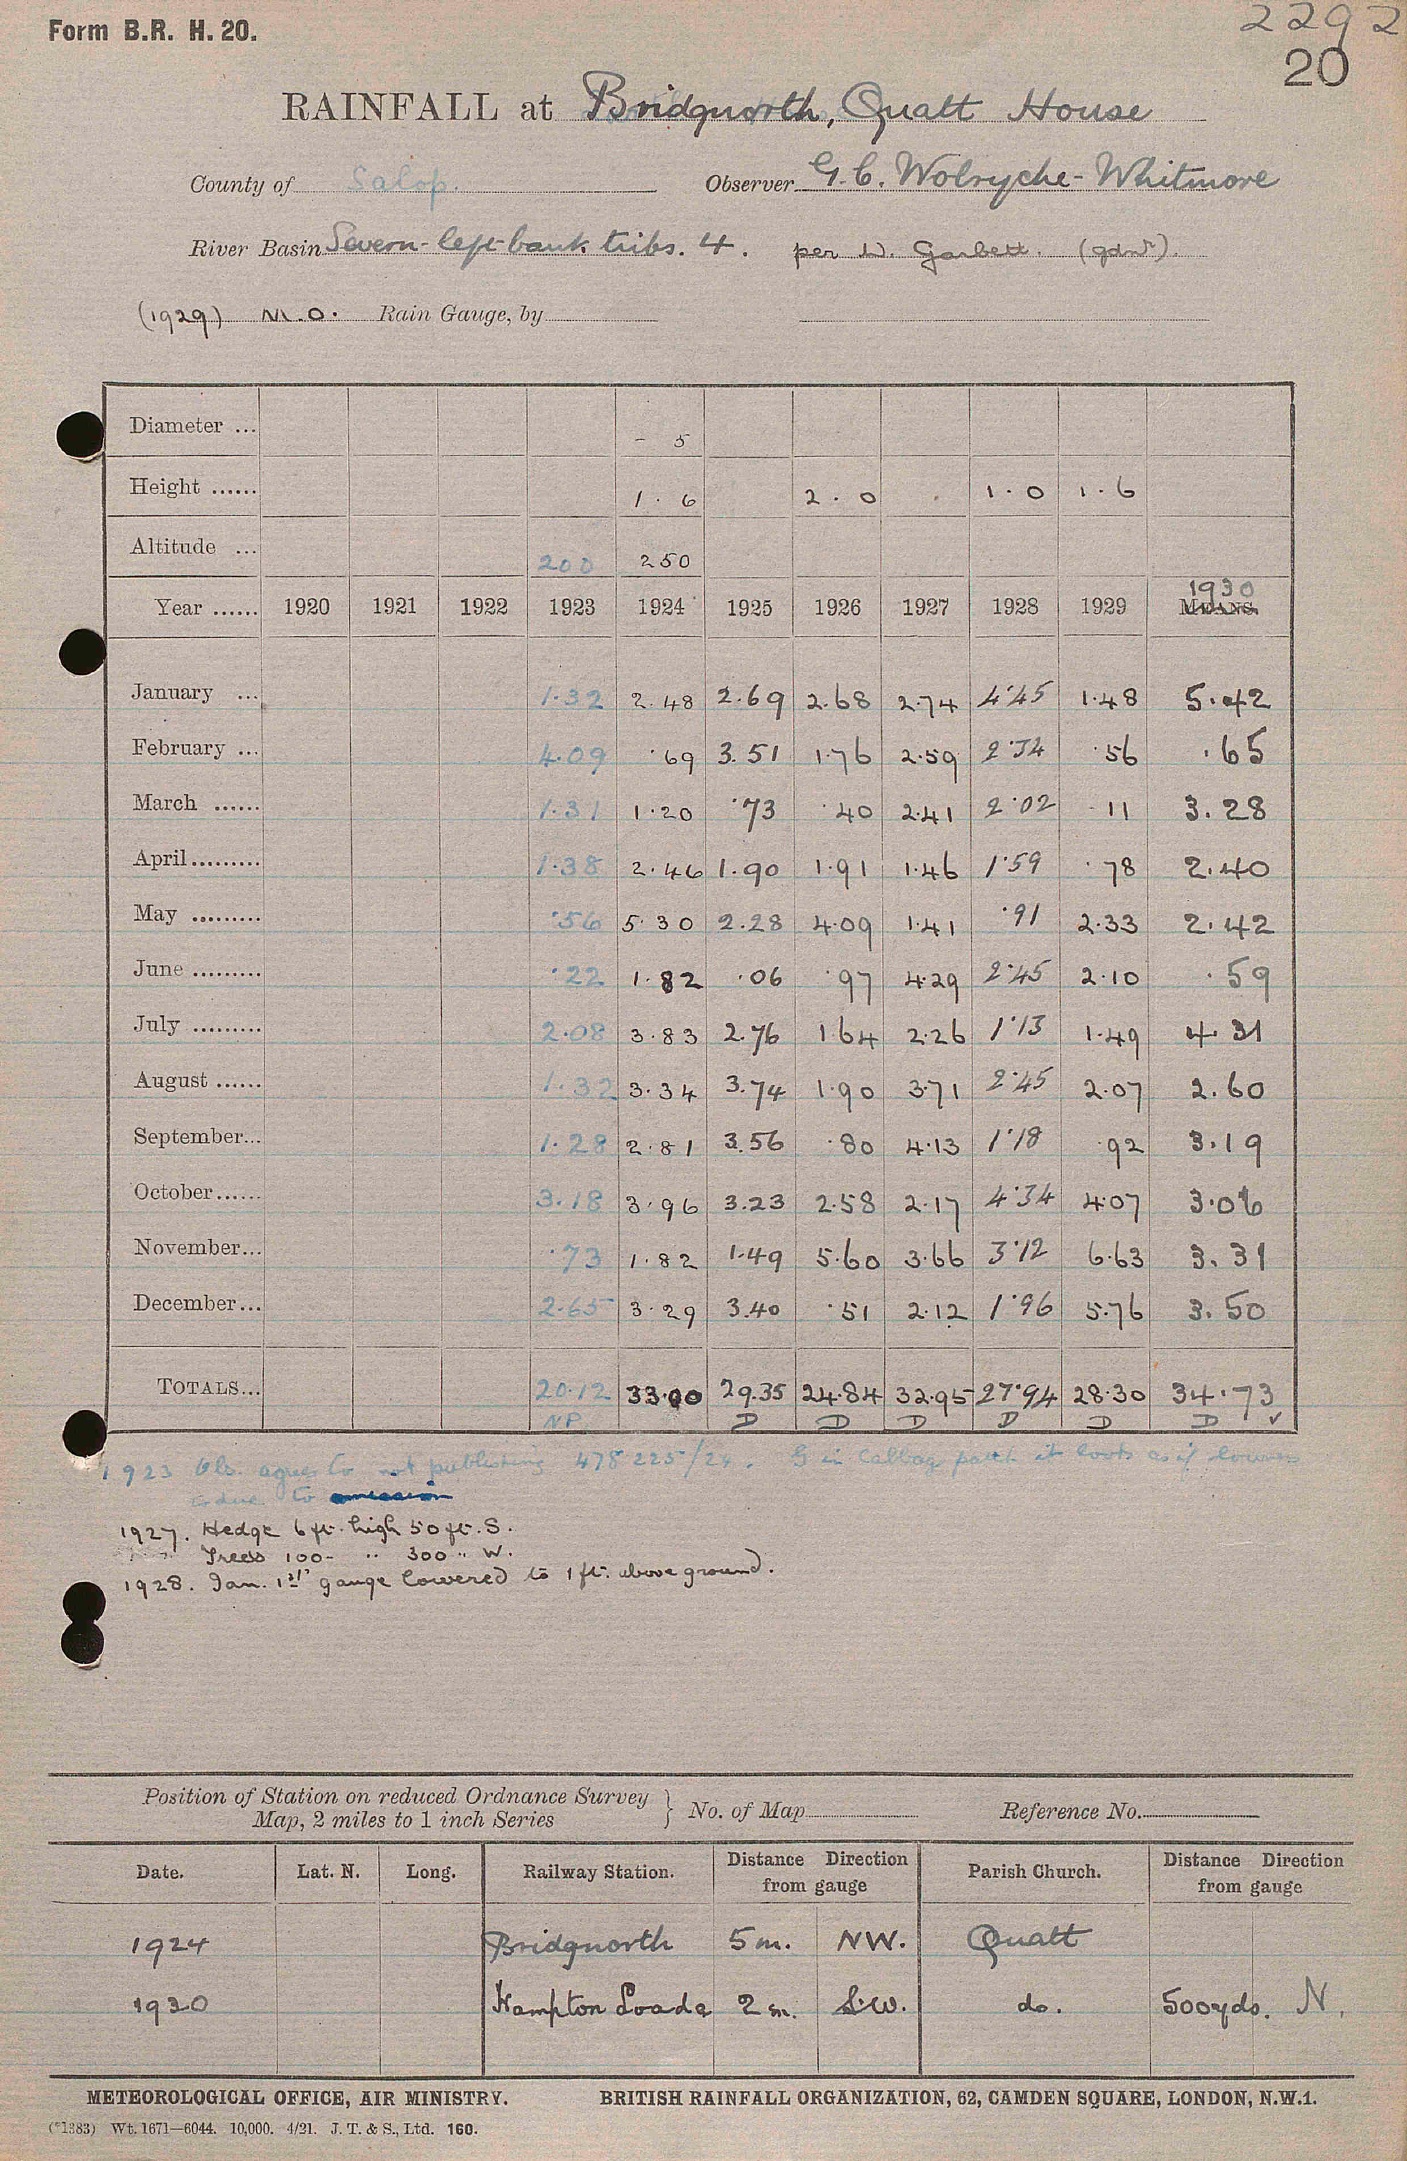 Form B.R. H. 20.
2292
20
RAINFALL at Bridgnorth, Quatt House
County of Salop. Observer G. C. Wolryche-Whitmore
River Basin Severn - left bank tribs. 4. per W. Garbett. (gdnr).
(1929) M.O. Rain Gauge, by
Diameter ... - 5
Height ...... 1 . 6 2 . 0 1 . 0 1 . 6
Altitude ... 200 250
1930
Year ...... 1920 1921 1922 1923 1924 1925 1926 1927 1928 1929 MEANS.
January ... 1.32 2.48 2.69 2.68 2.74 4.45 1.48 5.42
February ... 4.09 .69 3.51 1.76 2.59 2.34 .56 .65
March ...... 1.31 1.20 .73 .40 2.41 2.02 .11 3.28
April......... 1.38 2.46 1.90 1.91 1.46 1.59 .78 2.40
May ......... .56 5.30 2.28 4.09 1.41 .91 2.33 2.42
June ......... .22 1.82 .06 .97 4.29 2.45 2.10 .59
July ......... 2.08 3.83 2.76 1.64 2.26 1.13 1.49 4.31
August ...... 1.32 3.34 3.74 1.90 3.71 2.45 2.07 2.60
September... 1.28 2.81 3.56 .80 4.13 1.18 .92 3.19
October...... 3.18 3.96 3.23 2.58 2.17 4.34 4.07 3.06
November... .73 1.82 1.49 5.60 3.66 3.12 6.63 3.31
December... 2.65 3.29 3.40 .51 2.12 1.96 5.76 3.50
TOTALS... 20.12 33.00 29.35 24.84 32.95 27.94 28.30 34.73
NP D D D D D D ✓
1923 Obs. agrees to not publishing 478225/24. G in Cabbage patch it looks as if
due to omission
1927. Hedge 6 ft. high 50 ft. S.
Trees 100 - " 300 " W.
1928. Jan. 1st gauge lowered to 1 ft. above ground.
Position of Station on reduced Ordnance Survey
Map, 2 miles to 1 inch Series } No. of Map Reference No.
Date. Lat. N. Long. Railway Station. Distance Direction from gauge Parish Church. Distance Direction from gauge
1924 Bridgnorth 5 m. NW. Quatt
1930 Hampton Loade 2 m. S.W. do. 500 yds. N.
METEOROLOGICAL OFFICE, AIR MINISTRY. BRITISH RAINFALL ORGANIZATION, 62, CAMDEN SQUARE, LONDON, N.W.1.
(*1383) Wt. 1671—6044. 10,000. 4/21. J. T. & S., Ltd. 160.